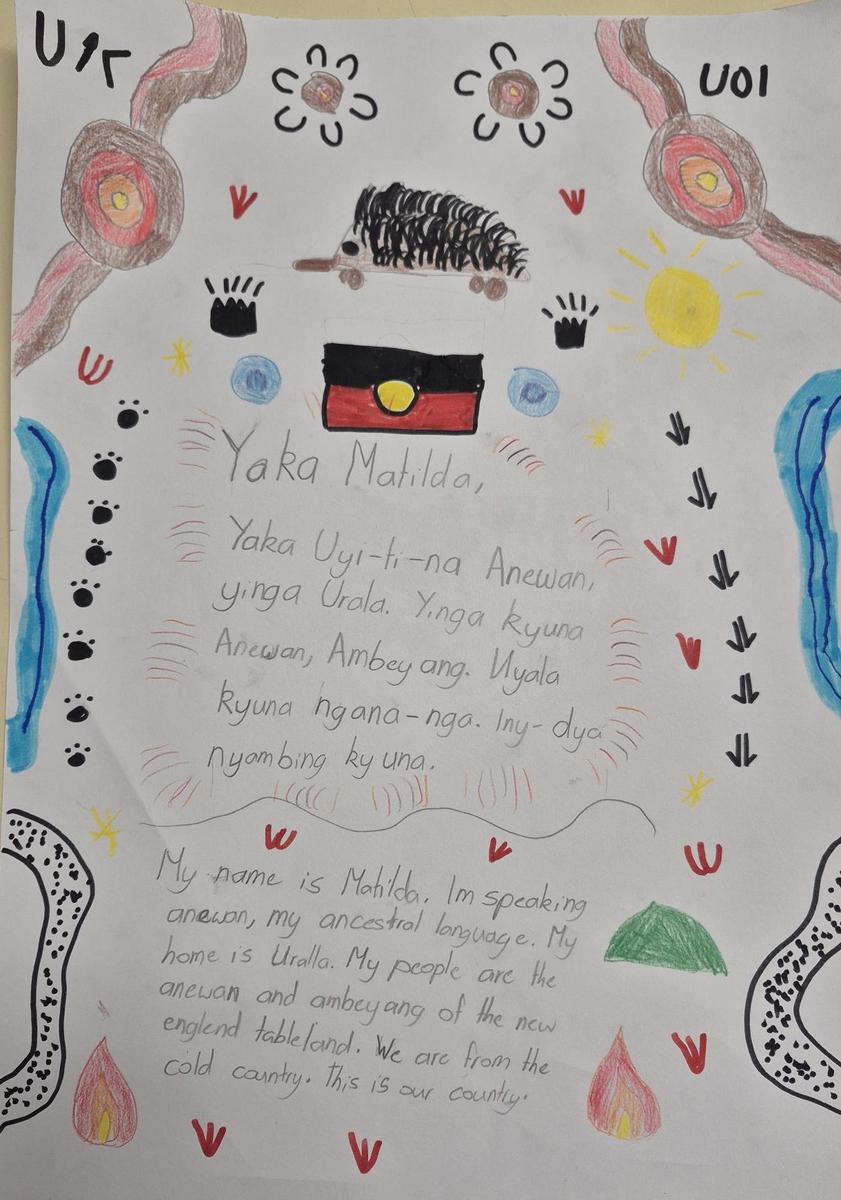 U01
Yaka Matilda,
Yaka Uyi-ti-na Anewan,
yinga Urala. Yinga kyuna
Anewan, Ambeyang. Uyala
kyuna ngana-nga. Iny-dya
nyambing kyuna.
My name is Matilda. Im speaking
anewan, my ancestral language. My
home is Uralla. My people are the
anewan and ambeyang of the new
englend tableland. We are from the
cold country. This is our country.